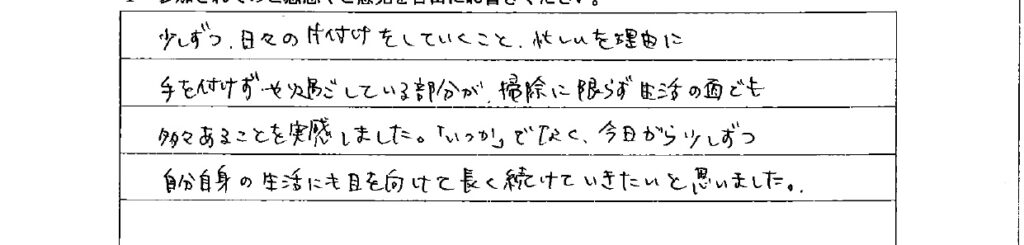 参加されてのご感想やご意見を自由にお書きください。
少しずつ、日々の片付けをしていくこと、忙しいを理由に
手を付けずやり過ごしている部分が、掃除に限らず生活の面でも
多々あることを実感しました。「いつか」でなく、今日から少しずつ
自分自身の生活にも目を向けて長く続けていきたいと思いました。